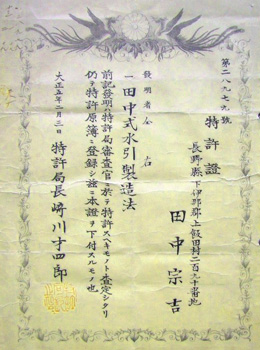 第二八九七九號
特許證
長野縣下伊那郡上飯田村二百九十番地
田中宗吉
發明者仝右
一田中式水引製造法
前記發明ハ特許局審査官ニ於テ特許スヘキモノト査定シタリ
仍テ特許原簿ニ登録シ茲ニ本證ヲ下付スルモノ也
大正五年二月三日
特許局長崎川才四郎